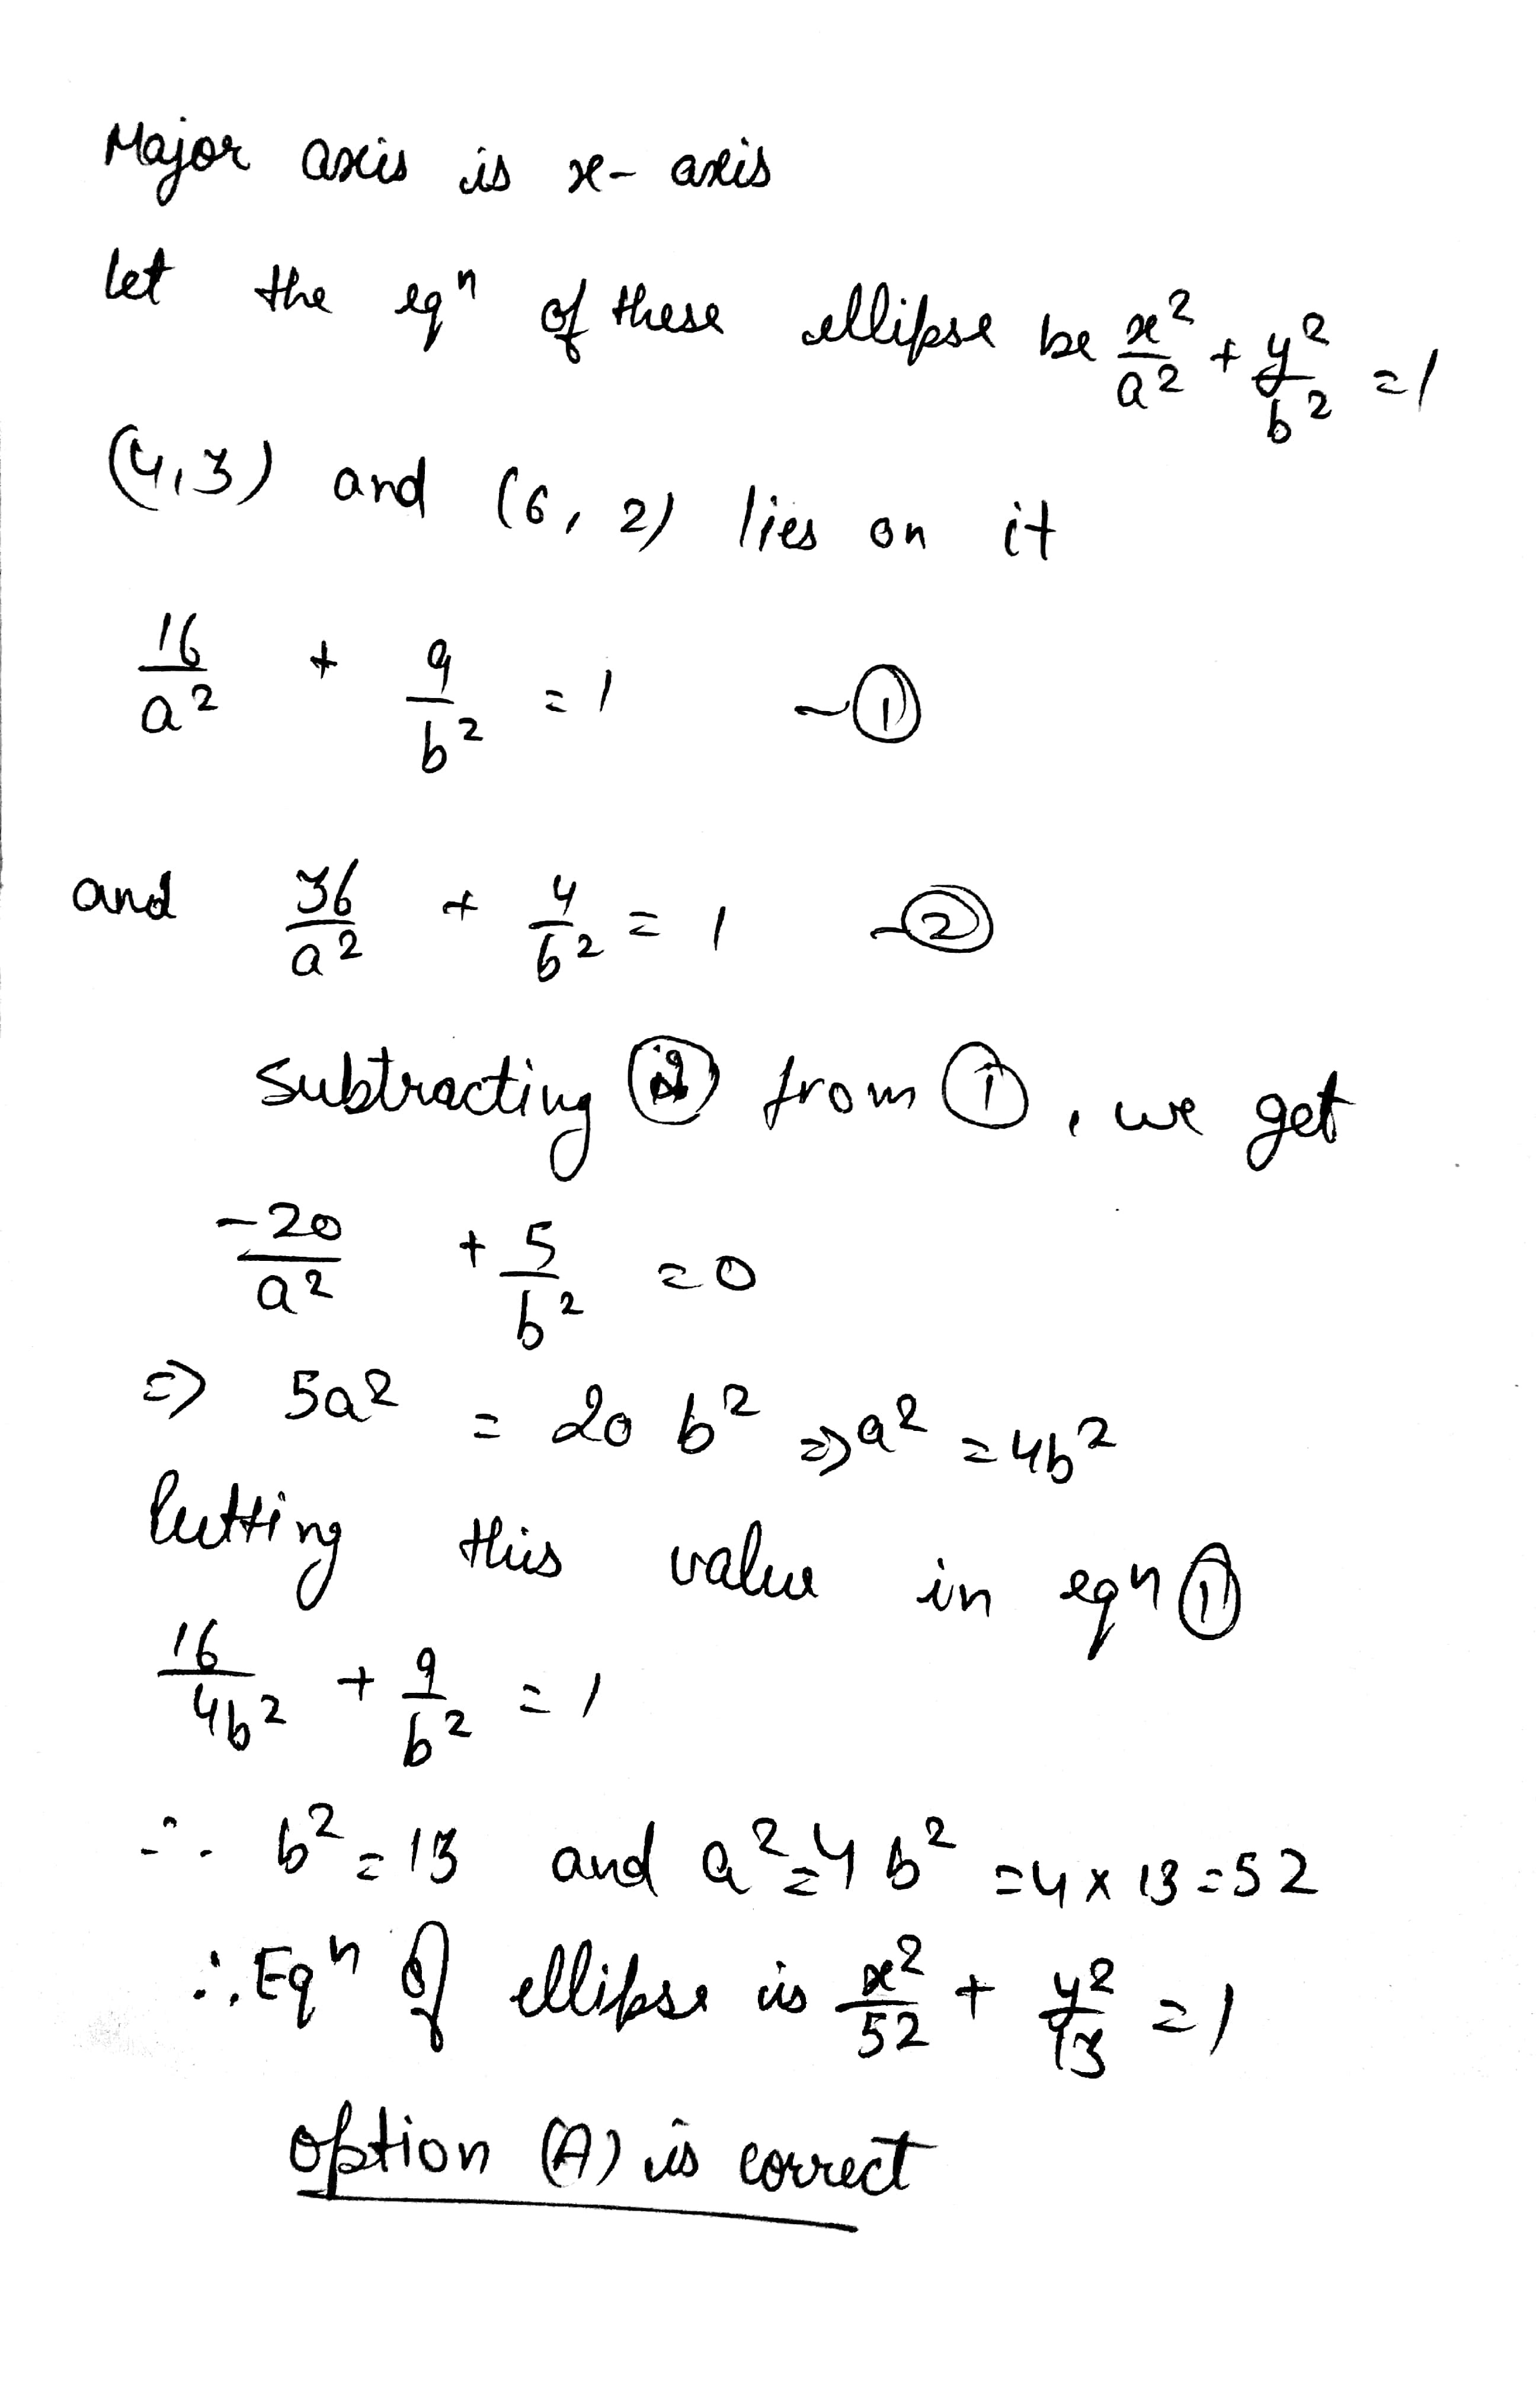 Major axis is x-axis
let the eqⁿ of these ellipse be x²/a² + y²/b² = 1
(4,3) and (6, 2) lies on it
16/a² + 9/b² = 1 -①
and 36/a² + 4/b² = 1 -②
Subtracting ② from ①, we get
-20/a² + 5/b² = 0
=> 5a² = 20 b² => a² = 4b²
Putting this value in eqⁿ ①
16/4b² + 9/b² = 1
∴ b² = 13 and a² = 4 b² = 4 x 13 = 52
∴ Eqⁿ of ellipse is x²/52 + y²/13 = 1
option (A) is correct